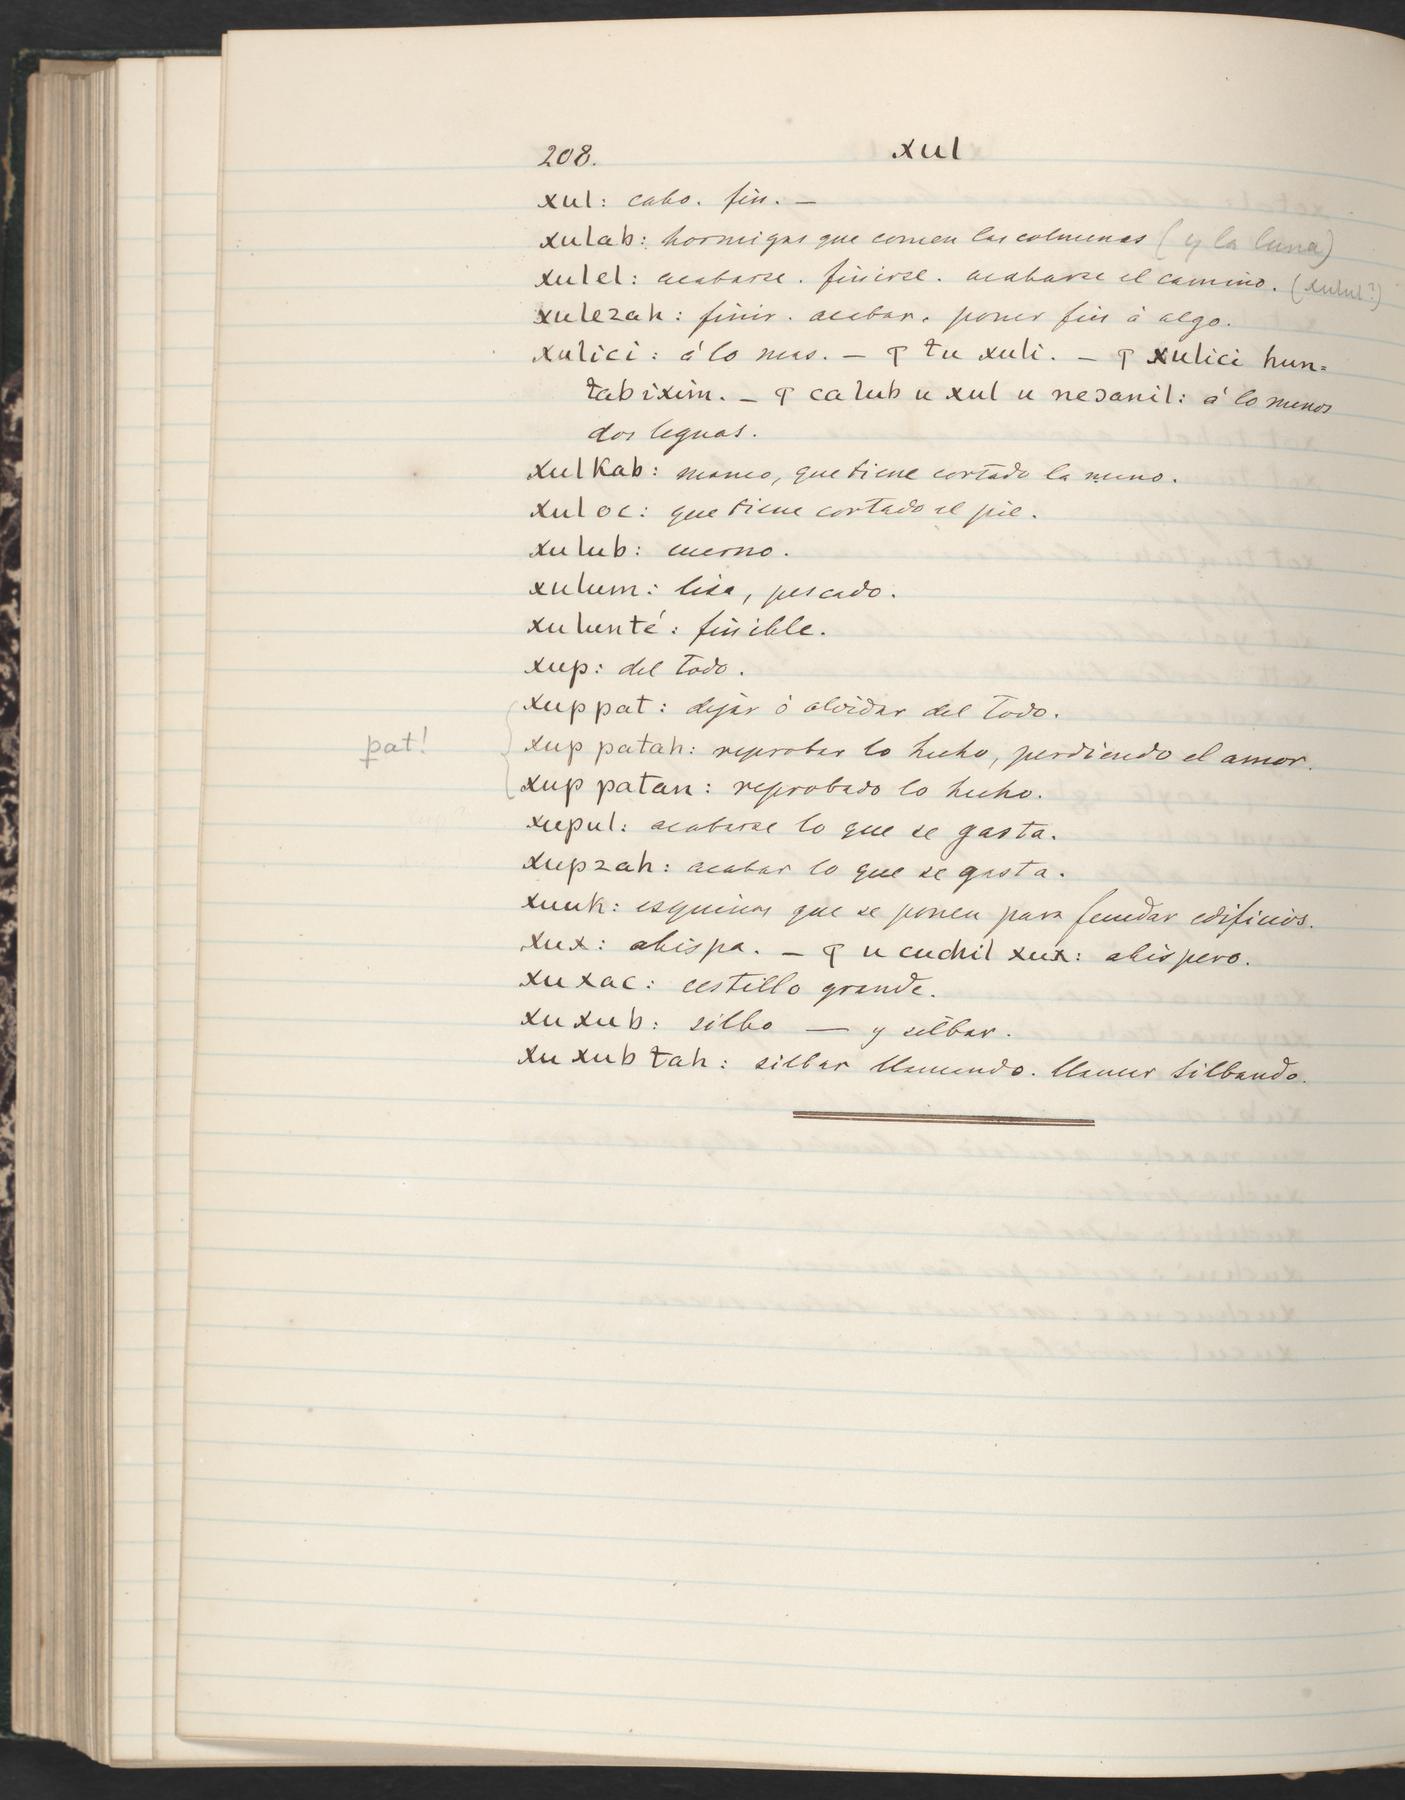 208. xul
xul: cabo. fin. —
xulab: hormigas que comen las colmenas (y la luna)
xulel: acabarse. finirse. acabarse el camino. (xulul?)
xulezah: finir. acabar. poner fin á algo.
xulici: á lo mas. — ꟼ tu xuli. — ꟼ xulici hun=
tab ixim. — ꟼ ca lub u xul u neɔanil: á lo menos
dos leguas.
xul Kab: manco, que tiene cortado la mano.
xul oc: que tiene cortado el pie.
xulub: cuerno.
xulum: lisa, pescado.
xulunté: finible.
xup: del todo.
xup pat: dejar ó olvidar del todo.
pat! xup patah: reprobar lo hecho, perdiendo el amor.
xup patan: reprobado lo hecho.
xupul: acabarse lo que se gasta.
xupzah: acabar lo que se gasta.
xuuk: esquinas que se ponen para fundar edificios.
xux: abispa. — ꟼ u cuchil xux: abispero.
xuxac: cestillo grande.
xuxub: silbo — y silbar.
xuxub tah: silbar llamando. llamar silbando.